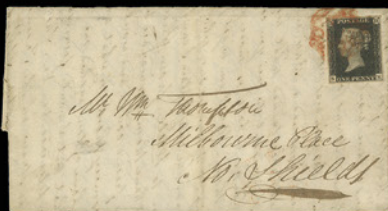 POSTAGE
ONE PENNY
Mr. Wm. Thompson
Milbourne Place
No. Shields